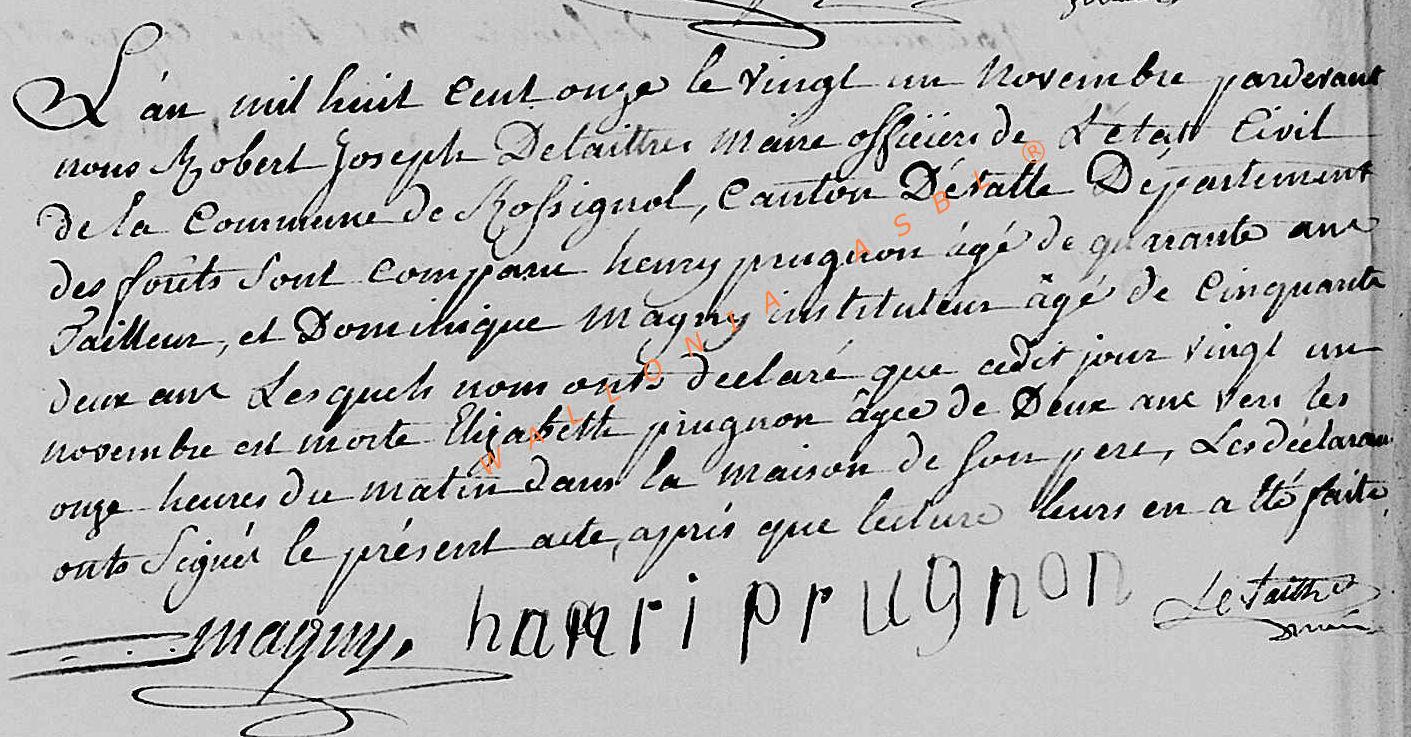 L'an mil huit cent onze le vingt un Novembre pardevant
nous Robert Joseph Delaittres maire officiers de L'état Civil
de la Commune de Rossignol, Canton D'étalle Département
des forêts sont comparu henry prugnon âgé de quarante ans
Tailleur, et Dominique Magny instituteur âgé de Cinquante
deux ans Lesquels nous onts declaré que cedit jour vingt un
novembre est morte Elizabeth prugnon âgée de Deux ans vers les
onze heures du matin dans la maison de son pere, Les déclarans
onts Signés le présent acte, après que lecture leurs en a été faite.
magny. hanri prugnon
WALLONIA ASBL ®